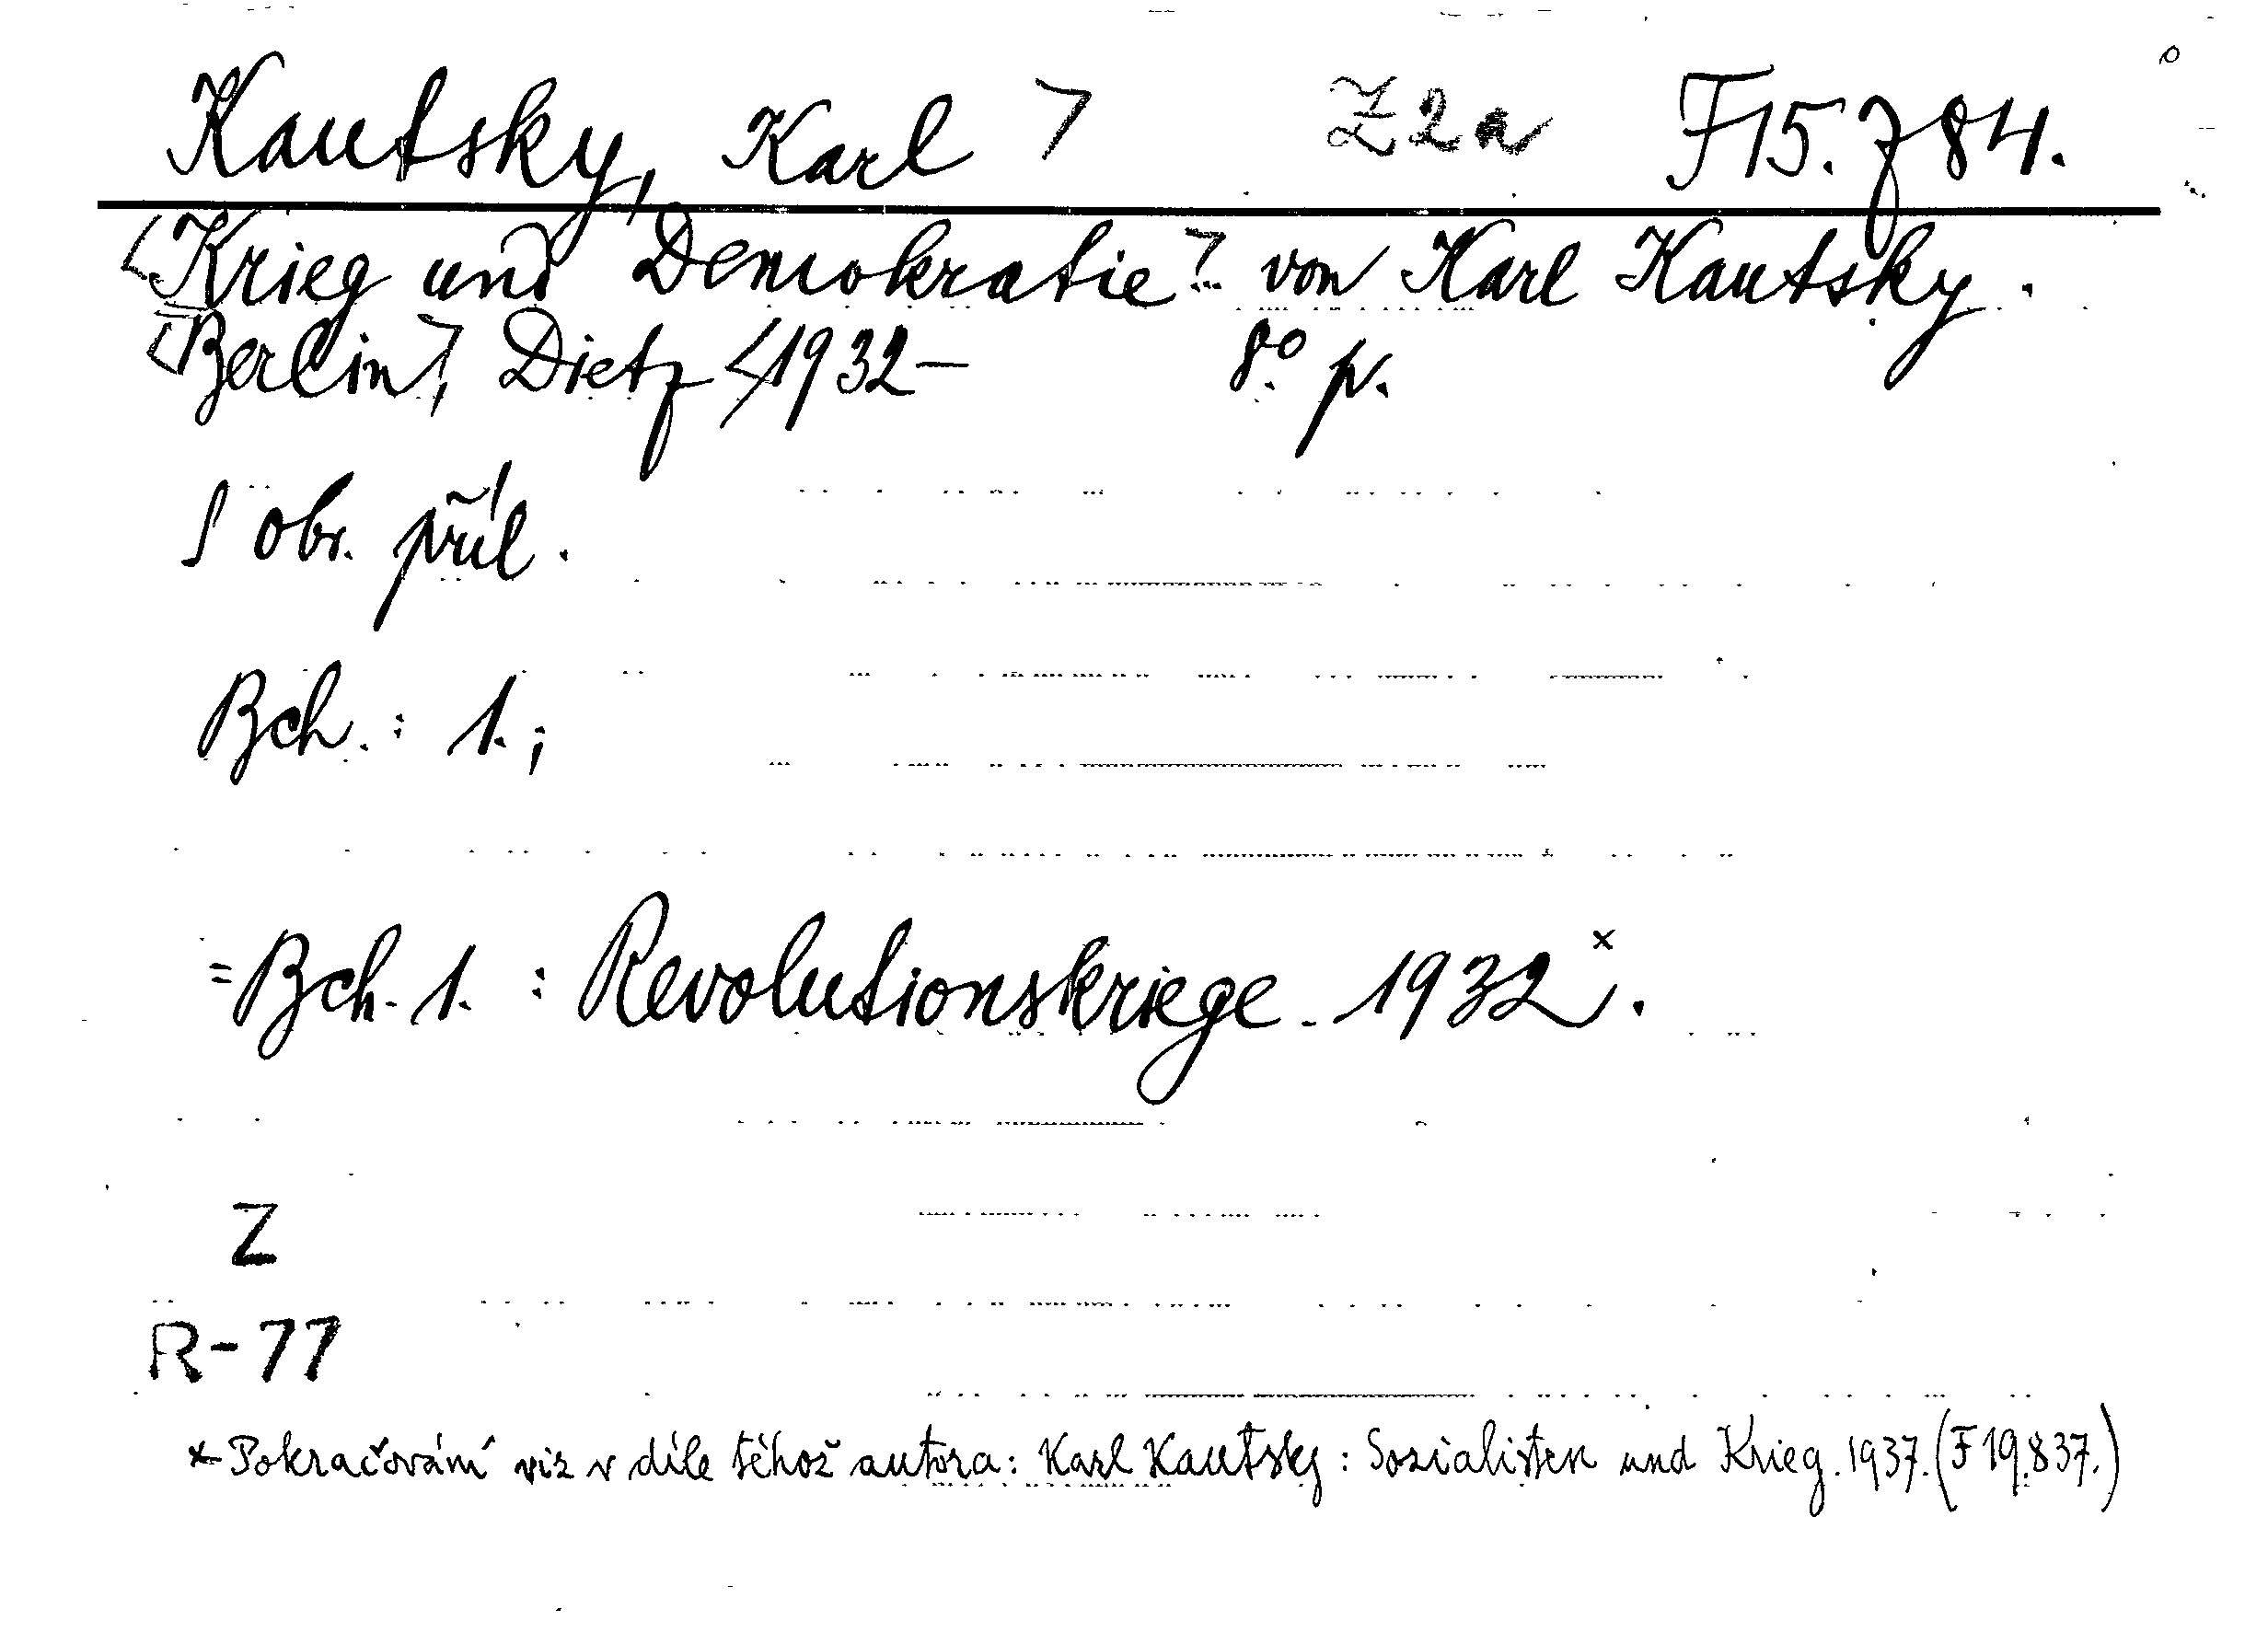 Kautsky, Karl > Z2a F15.784.
<Krieg und Demokratie> von Karl Kautsky.
<Berlin>, Dietz <1932– 8° p.
S obr. příl.
Bch.: 1.;
=Bch. 1. : Revolutionskriege. 1932ˣ.
Z
R-77
x Pokračování viz v díle téhož autora: Karl Kautsky: Sozialisten und Krieg. 1937. (F 19.837.)